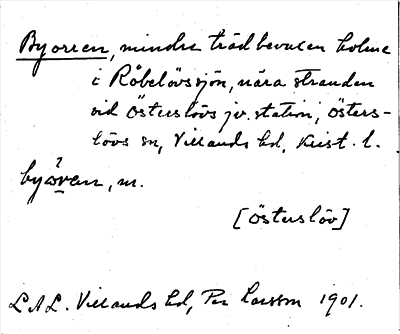 Byorren, mindre trädbevuxen holme
i Råbelövssjön, nära stranden
vid Österslövs jv. station, Östers-
lövs sn, Villands hd, Krist. l.
?
byåren, m.
[Österslöv]
LAL. Villands hd, Per Larsson 1901.